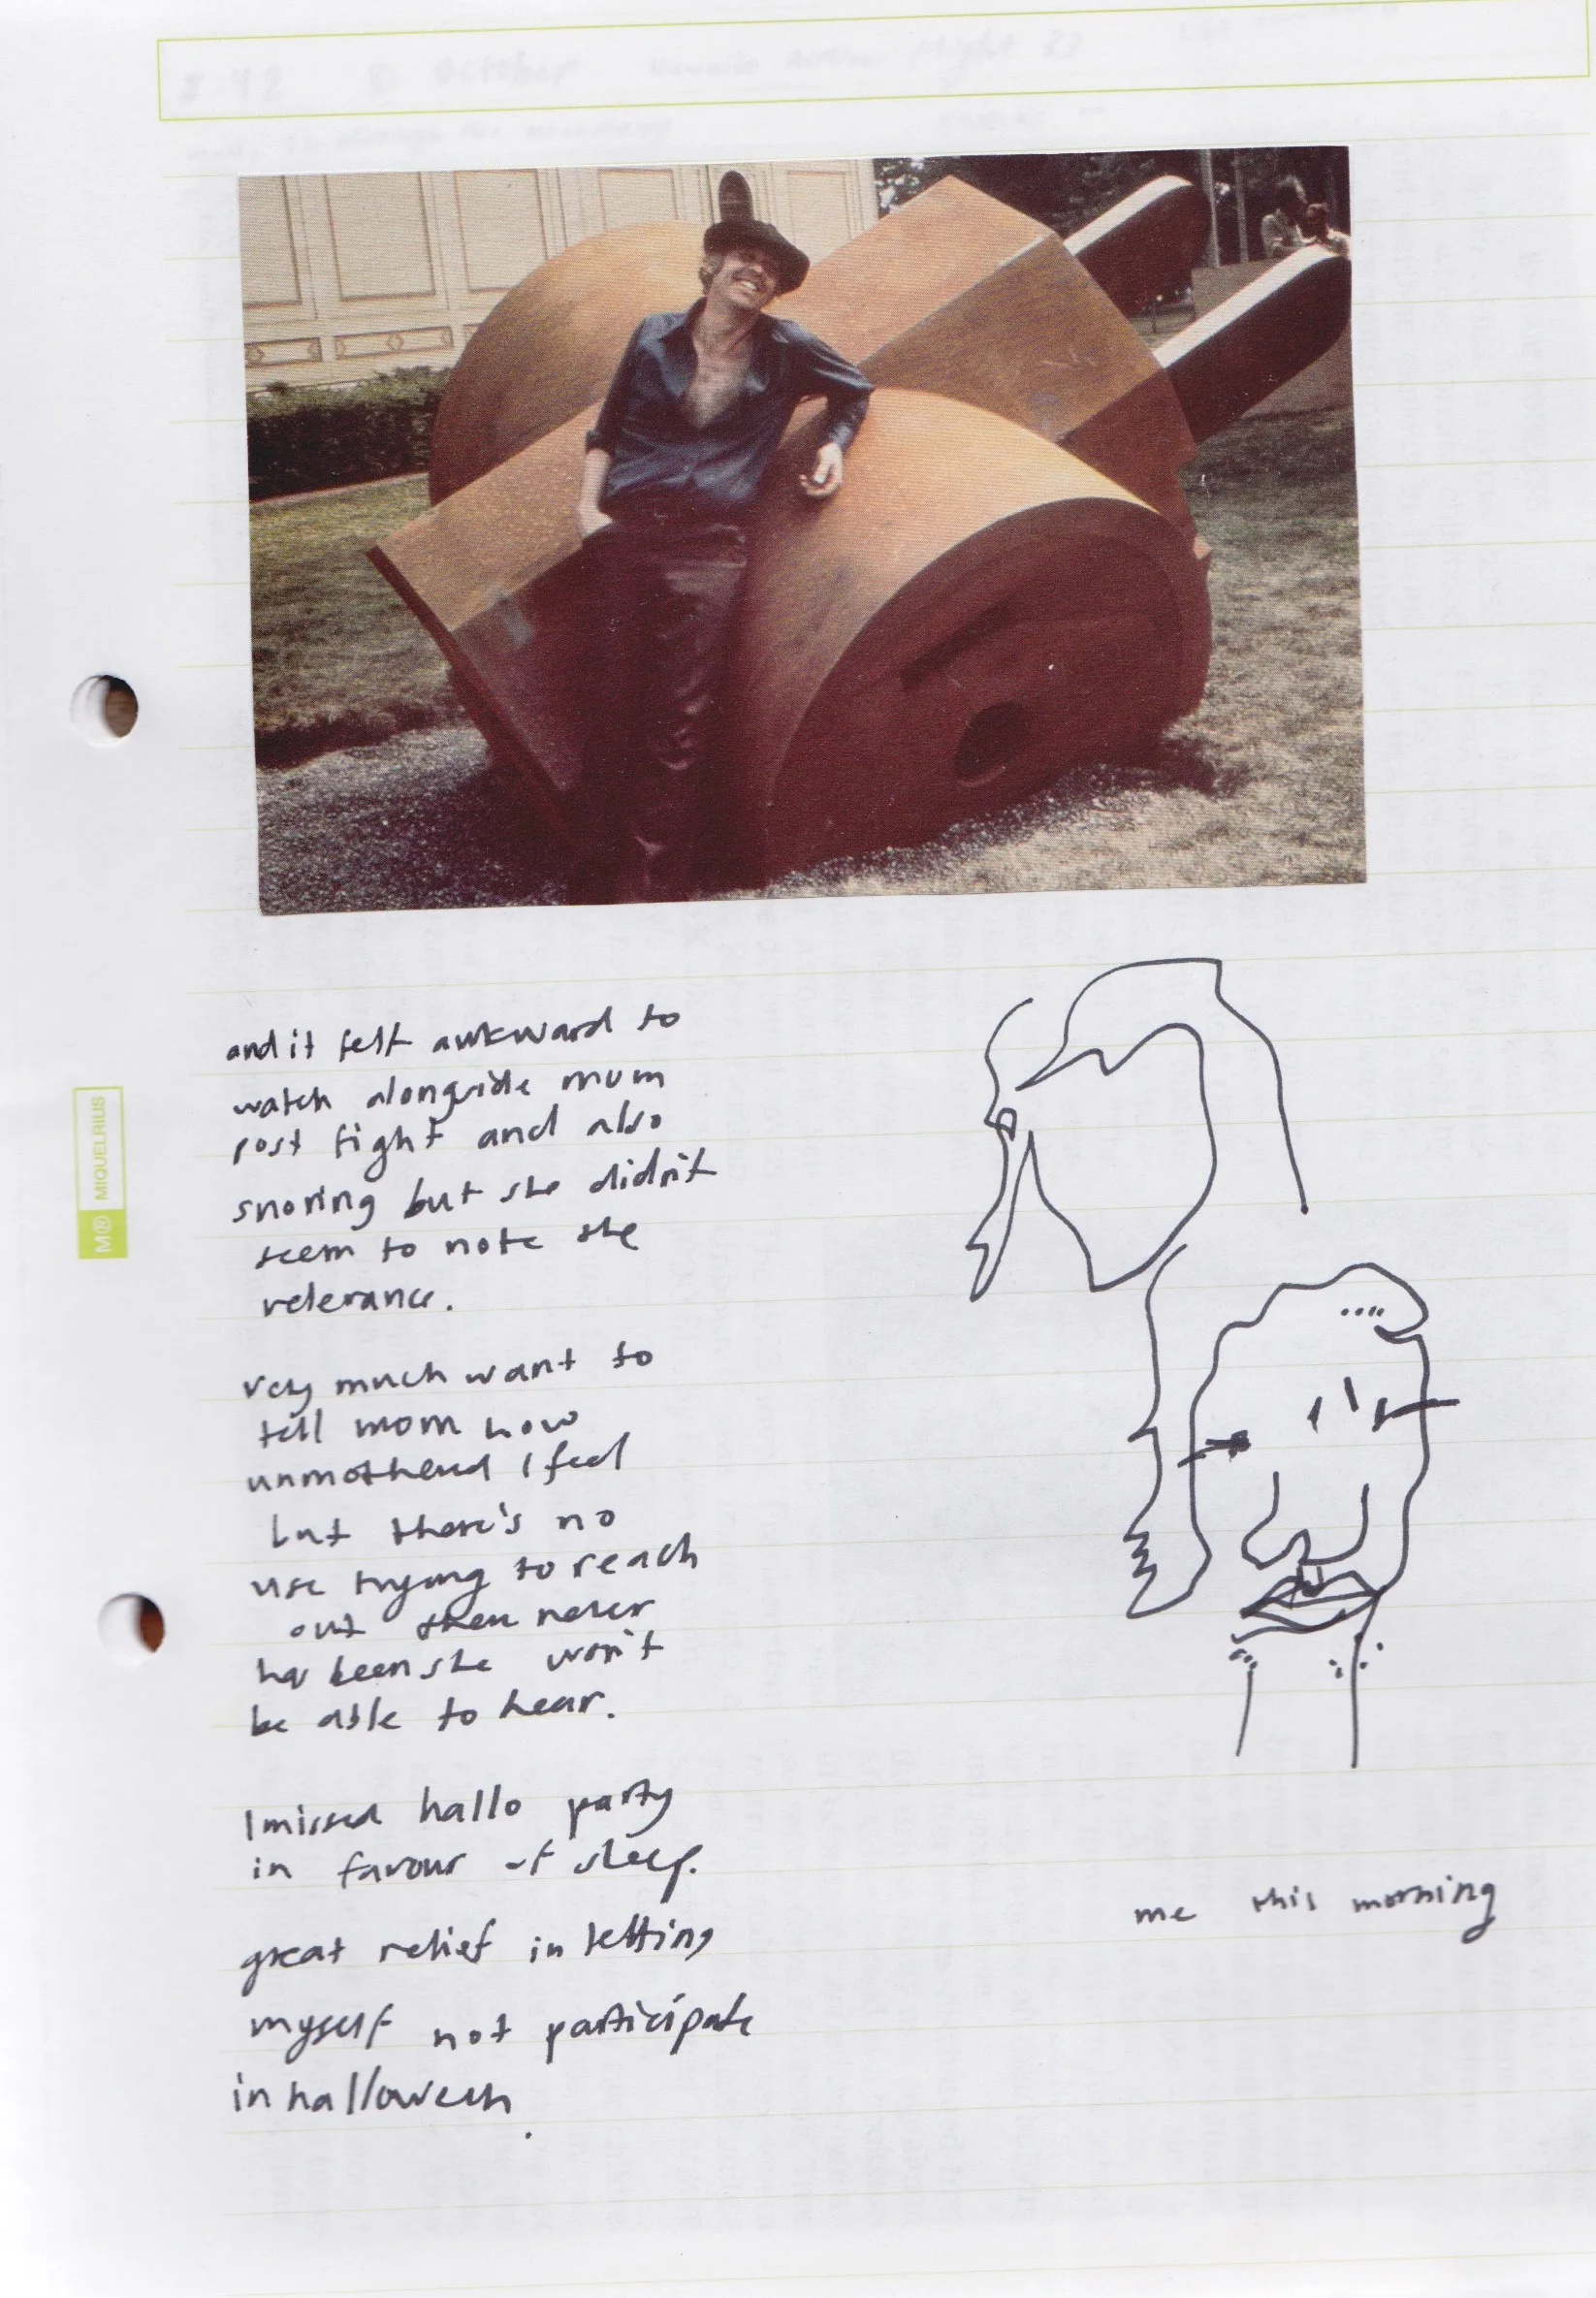 and it felt awkward to
watch alongside mum
post fight and also
snoring but she didn't
seem to note the
relevance.
very much want to
tell mom how
unmothered I feel
but there's no
use trying to reach
out there never
has been she won't
be able to hear.
I missed hallo party
in favour of sleep.
great relief in letting
myself not participate
in halloween.
me this morning
M® MIQUELRIUS
October